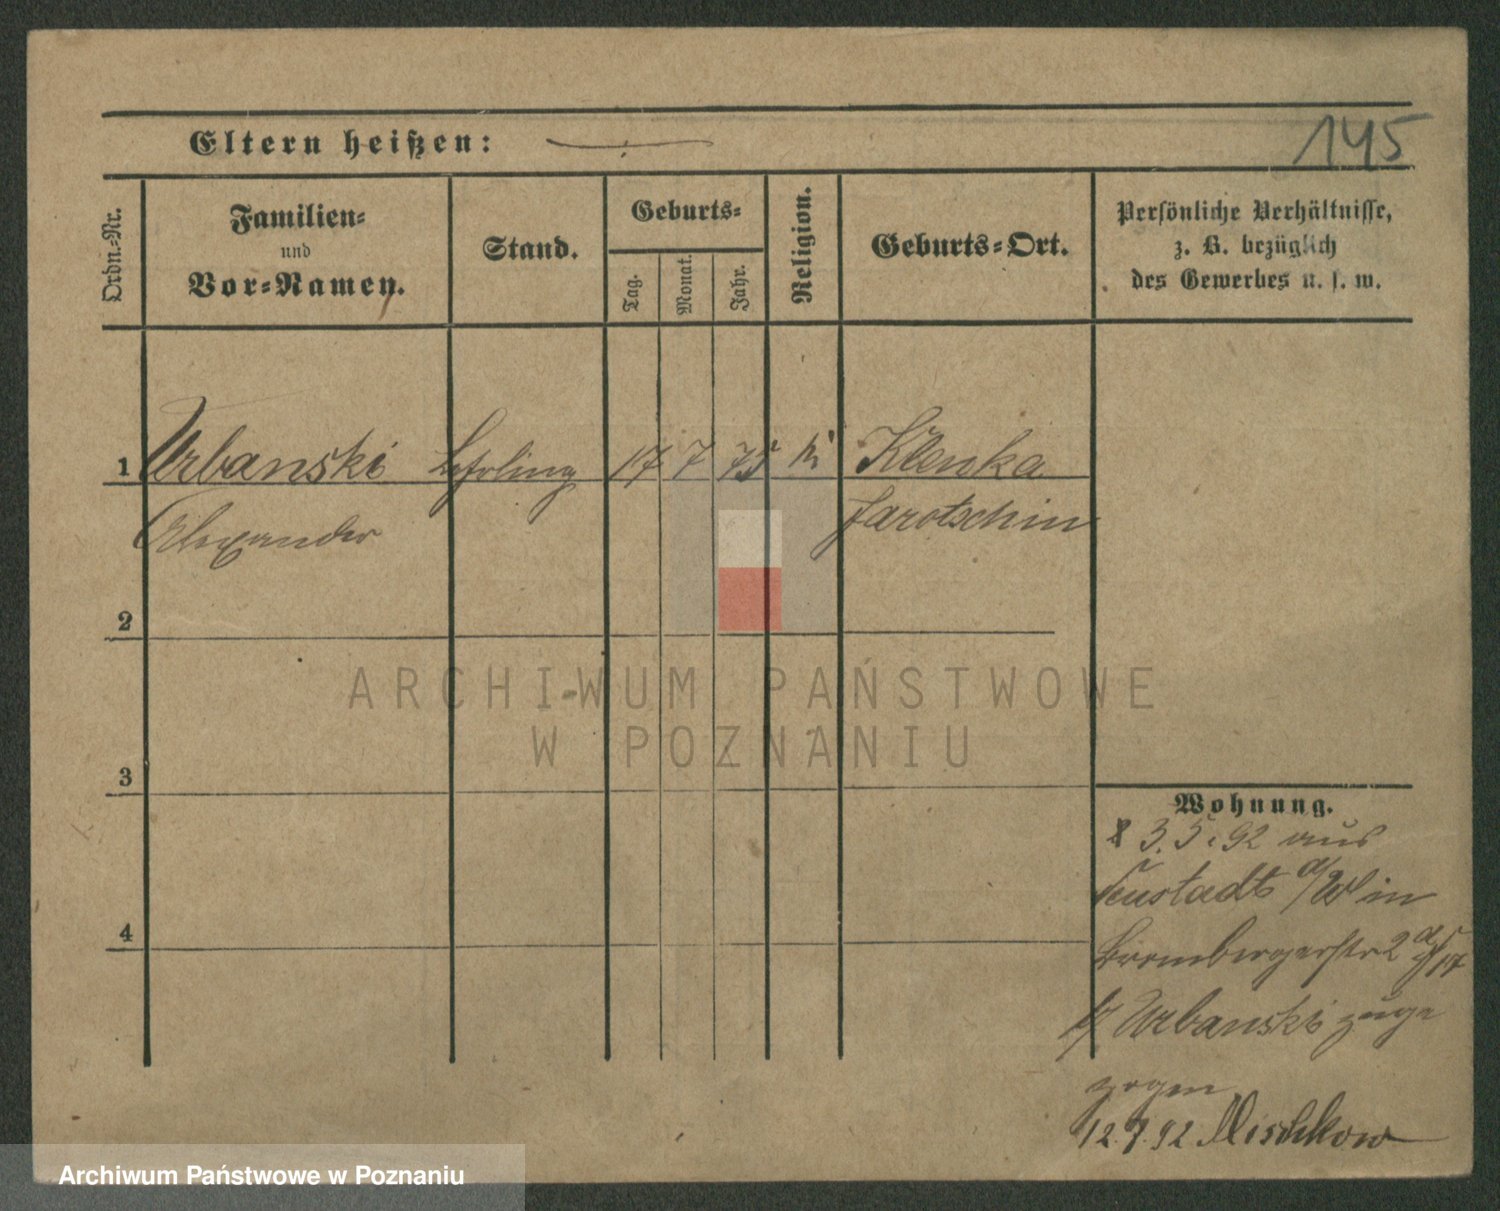 145
Eltern heißen:
Ordn.-Nr.
Familien-
und
Vor-Namen.
Stand.
Geburts-
Tag.
Monat.
Jahr.
Religion.
Geburts-Ort.
Persönliche Verhältnisse,
z. B. bezüglich
des Gewerbes u. s. w.
1 Urbanski Lehrling 17 7 75 k Klenka
Alexander Jarotschin
2
3
4
Wohnung.
3.5.92 aus
Neustadt a/W in
Brombergerstr 2
Urbanski zuge
zogen
12.7.92 Mischkow
ARCHIWUM PAŃSTWOWE
W POZNANIU
Archiwum Państwowe w Poznaniu